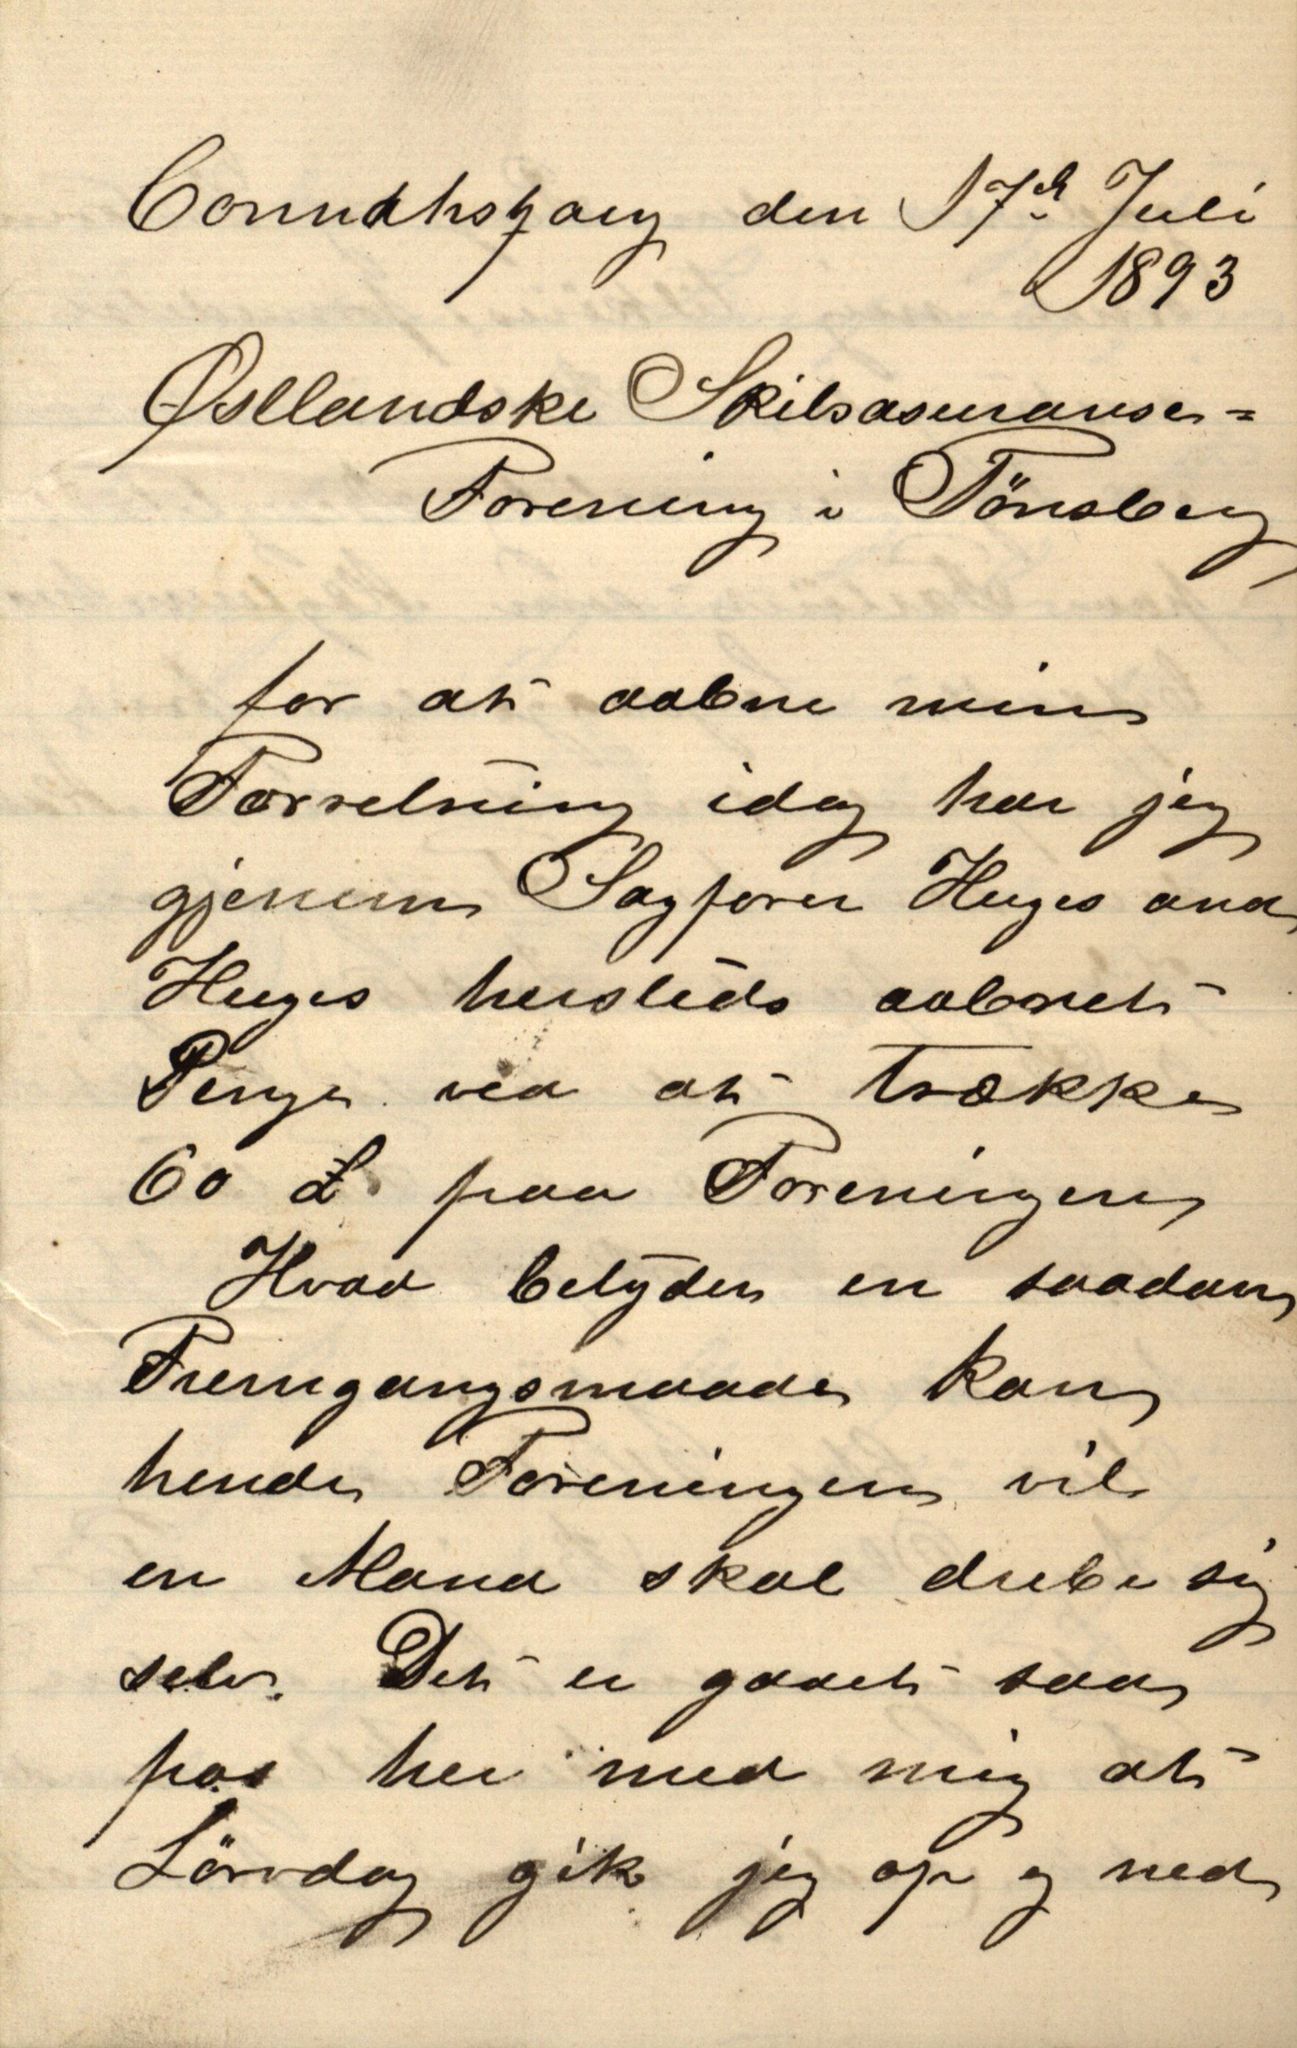 Connahsqauy den 17de Juli
1893
Østlandske Skibsasuranse=
Forening i Tönsberg
for at aabne min
Forretning idag har jeg
gjenem Sagfører Huges and
Huges hersteds aabnet
Penge ved at trække
60 £ paa Foreningen
Hvad betyder en saadan
Fremgangsmaade kan
hende Foreningen vil
en Mand skal drebe sig
selv. Det er gaaet saa
pas her med mig at
Lörvdag gik jeg op og ned